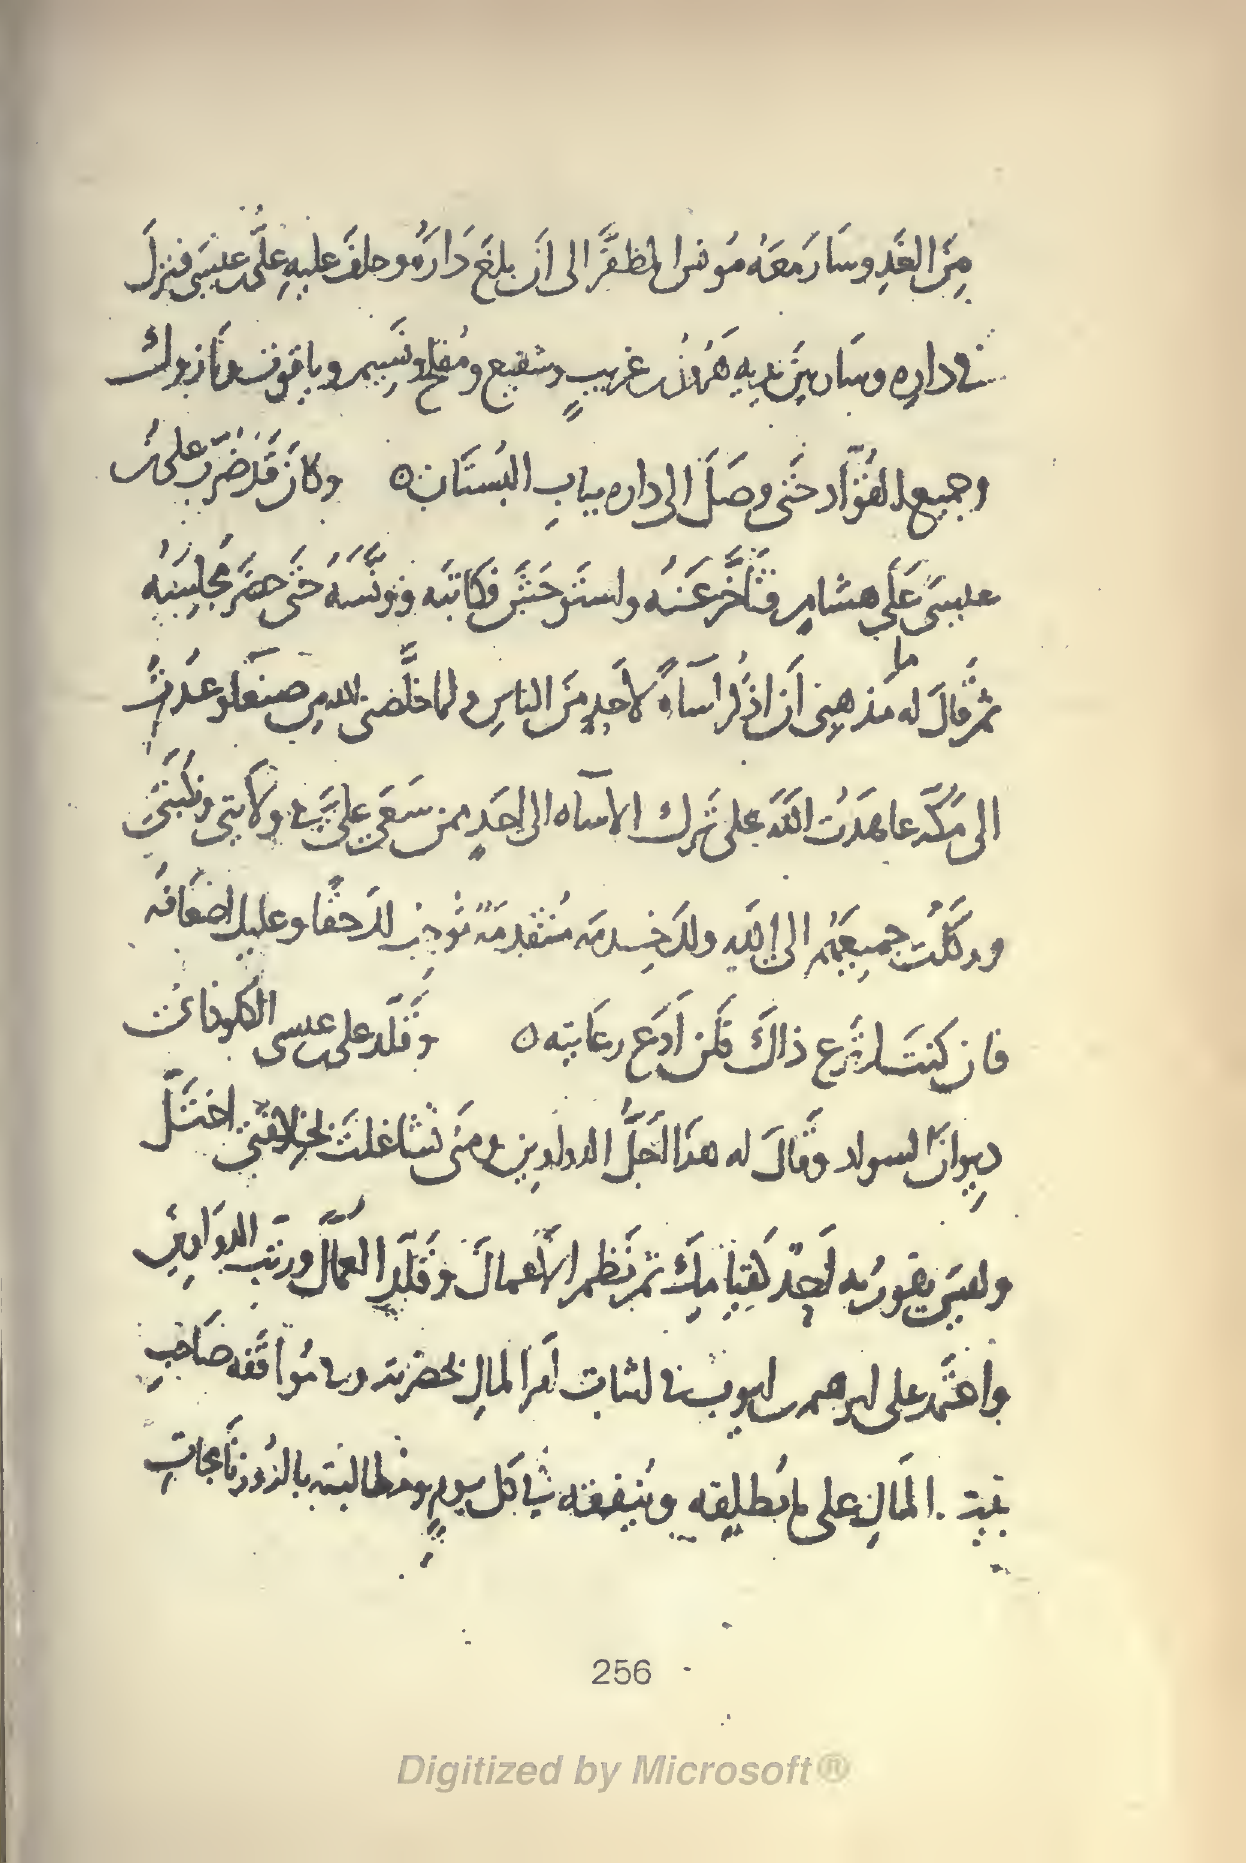 مِنَ الغَدِ وسَارَ مَعَهُ مُونس المظفَّر الى ان بلغَ دَارَهُ وحلفَ عليهِ علىُّ بن عيسَى فنزلَ
في دارِهِ وسَار بينَ يديهِ هَرُونُ بن غريبٍ وشفيع ومُفلح ونَسِيم وياقوت ونَازوك
وجميع القُوَّاد حتَّى وصَلَ الى داره ببابِ البُستَان ٥ وكانَ قَد ضرّبَ على بن
عيسَى عَلَى هشامٍ فتَأخَّرَ عَنهُ واستَوحَشَ فكاتبَه وونَّسَهُ حَتَّى حضَرَ مجلِسَهُ
ثم قالَ له ما مَذهبي أن اذكُر اسَآءَةً لاحَدٍ مِنَ الناسِ ولما خلَّصني الله من صنعَا وعُدتُ
الى مَكَّةَ عاهَدتُ اللهَ على تَرك الاسآه الى احَدٍ ممن سَعَى علىَّ في ولايتى ونكبَتى
ووكَلتُ جميعَهُم الى اللهِ ولكَ خِدمَه مُتقدِمَةٌ تُوجبُ لك حقًّا وعليك اضعَافَه
فان كنتَ لم ترع ذاكَ فلَن أدَع رعَايته ٥ وقَلَّد على بن عيسى الكلوذانىَّ
ديوانَ السواد وقَالَ له هذَا اجَلُّ الدواوين ومتَى تشاغلتَ بخلافتى اختَلَّ
وليسَ يقومُ به احَدٌ كقِيامِكَ ثم نَظم الأعمالَ وقَلَّد العُمَّال ورتبَ الدوَاوينَ
واعتَمدَ على ابرهيم بن ايوب في اثبات أمر المالِ بحضرته وفي مُوافَقَه صَاحبِ
بيت المَالِ على ما يُطلِقه ويُنفِقه في كل يومٍ ومُطالبته بالرُوزنَامجاتِ
256
Digitized by Microsoft®